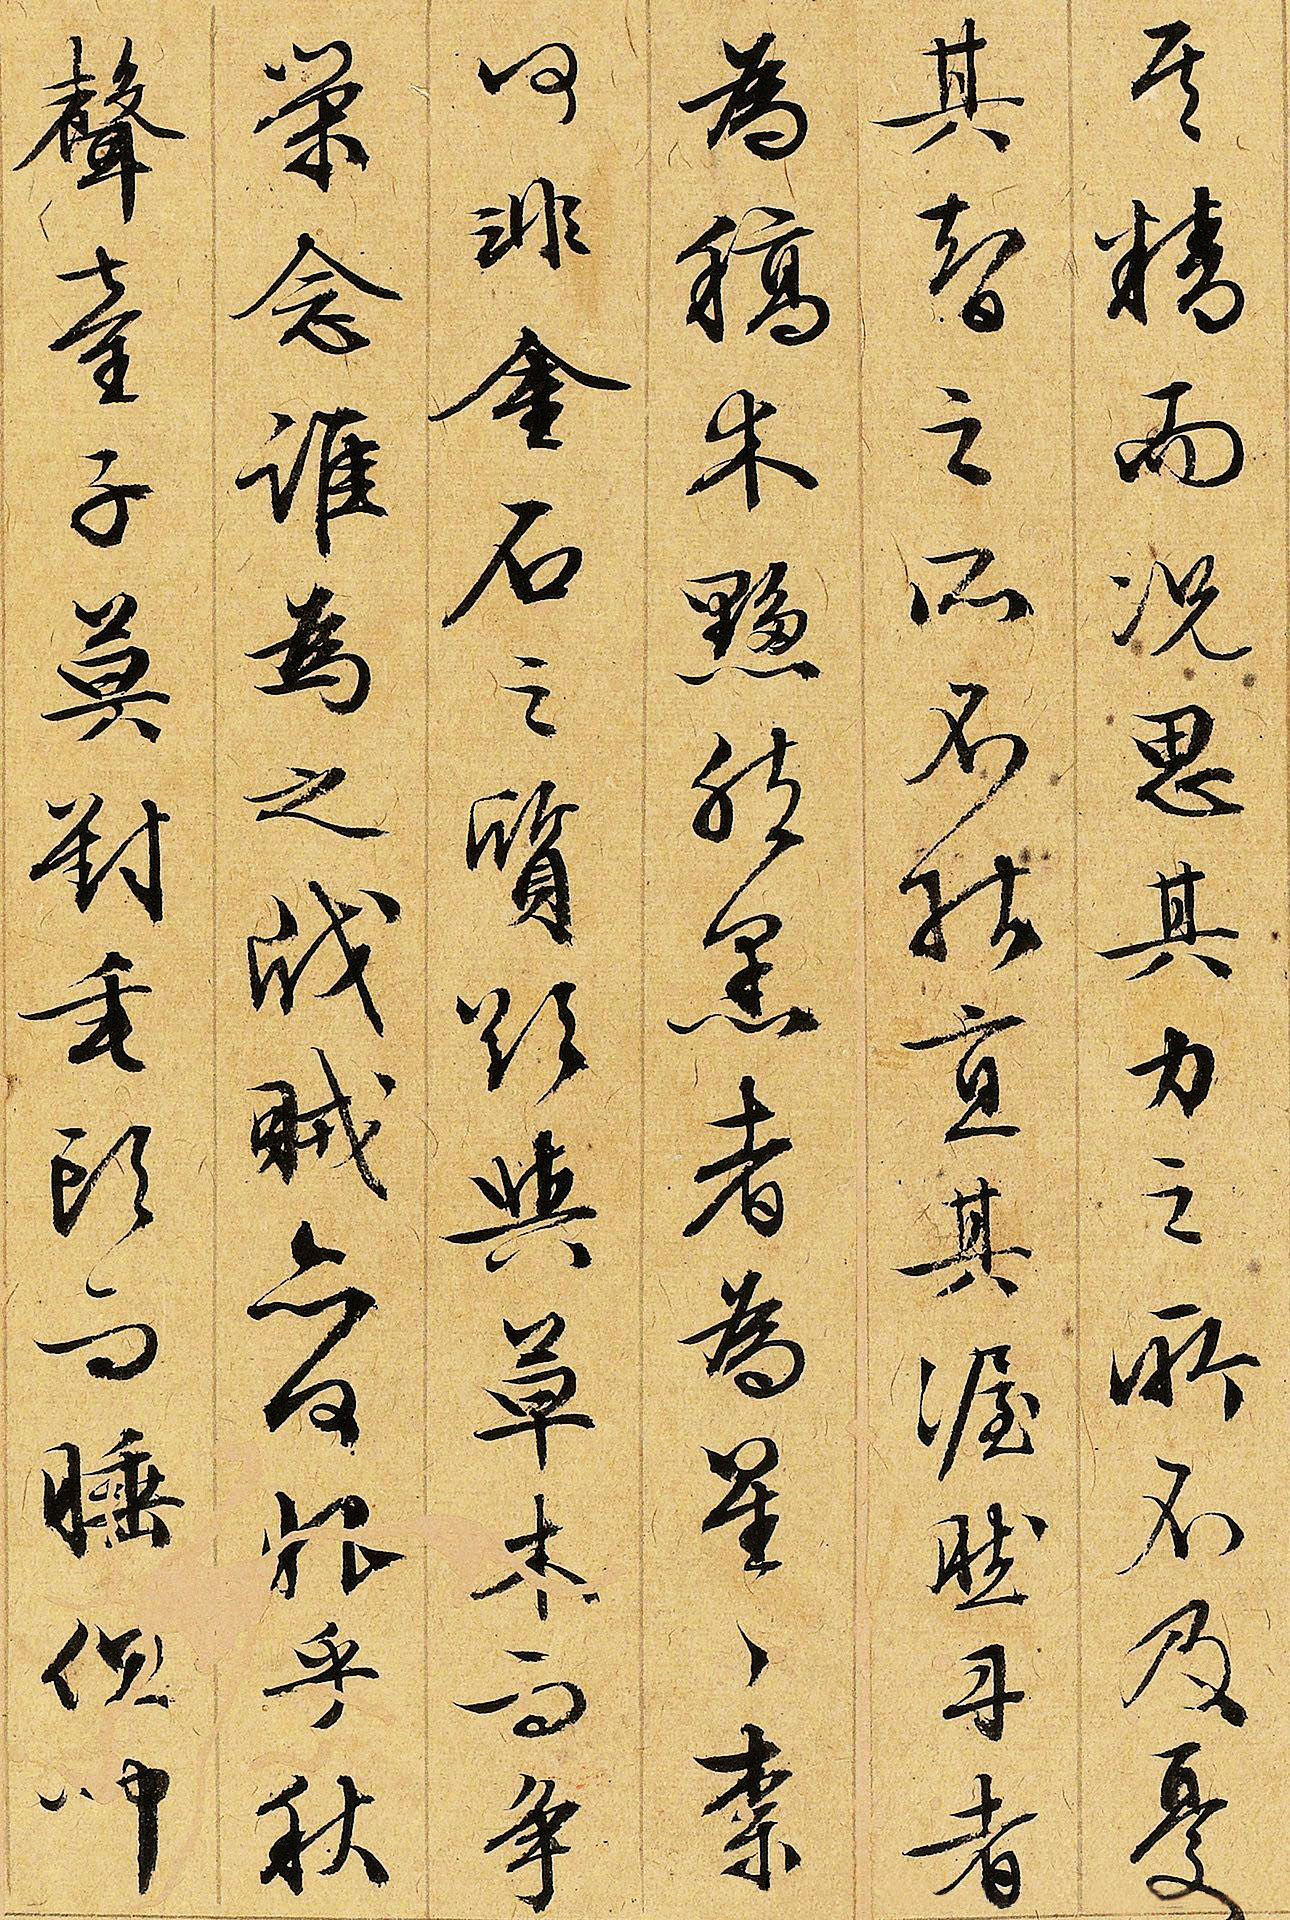 其精而況思其力之所不及憂
其智之所不能宜其渥然丹者
為稿木黟然黑者為星〻柰
何非金石之質欲與草木而爭
榮念誰為之戕賊亦何恨乎秋
聲童子莫對垂頭而睡但聞